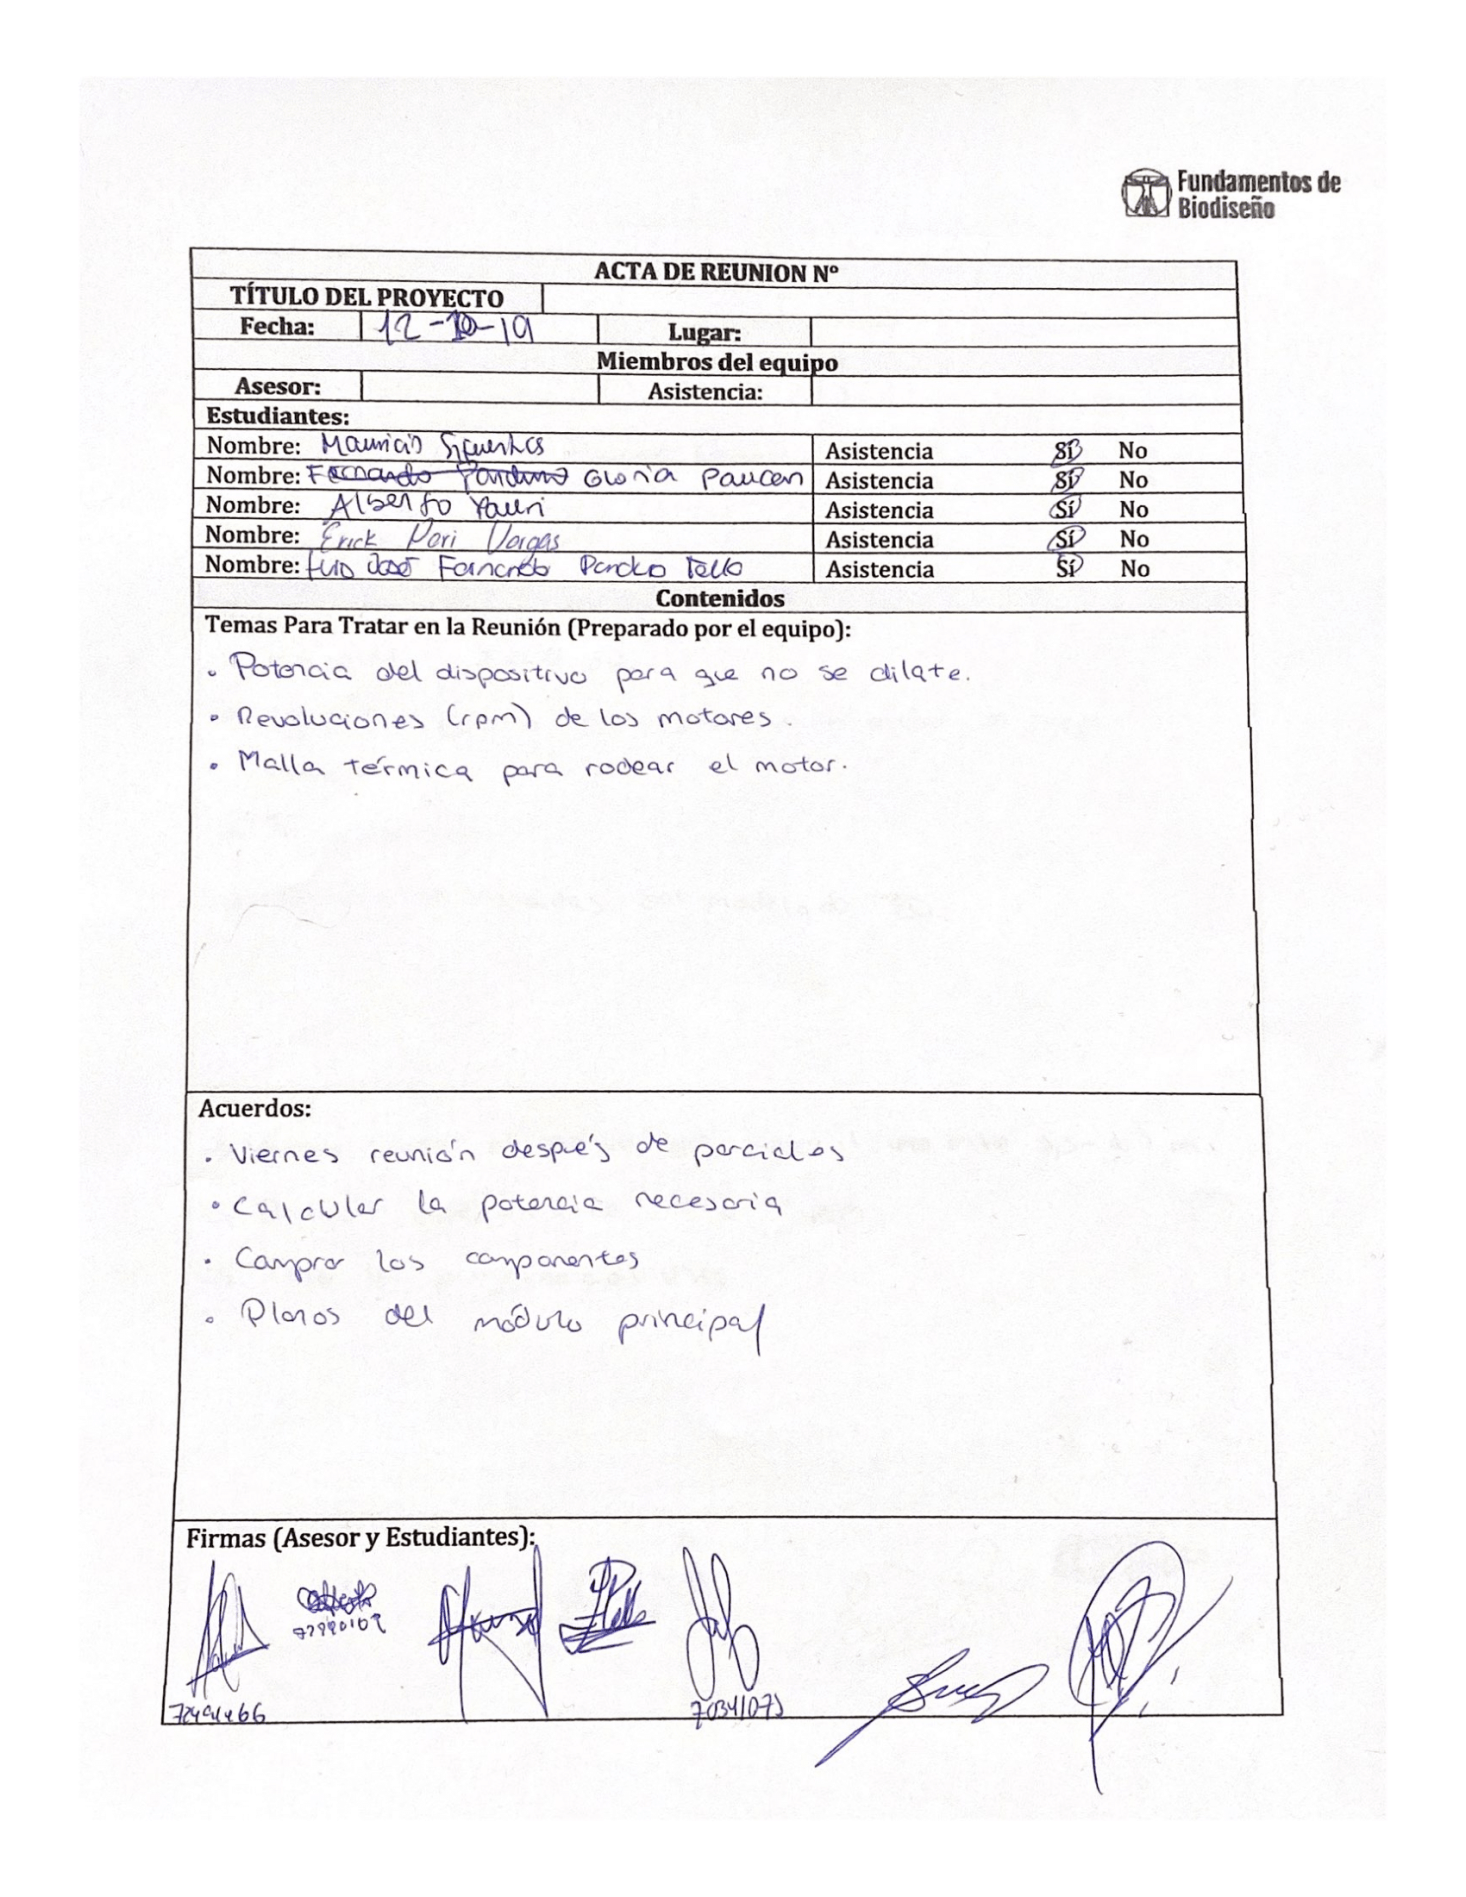 Fundamentos de
Biodiseño
ACTA DE REUNION Nº
TÍTULO DEL PROYECTO
Fecha: 12-10-19 Lugar:
Miembros del equipo
Asesor: Asistencia:
Estudiantes:
Nombre: Mauricio Sifuentes Asistencia Sí No
Nombre: Fernando Gloria Paucar Asistencia Sí No
Nombre: Alberto Yauri Asistencia Sí No
Nombre: Erick Pari Vargas Asistencia Sí No
Nombre: Luis José Fernando Pardo Tello Asistencia Sí No
Contenidos
Temas Para Tratar en la Reunión (Preparado por el equipo):
• Potencia del dispositivo para que no se dilate.
• Revoluciones (rpm) de los motores.
• Malla térmica para rodear el motor.
Acuerdos:
• Viernes reunión despues de parciales
• Calcular la potencia necesaria
• Comprar los componentes
• Planos del módulo principal
Firmas (Asesor y Estudiantes):